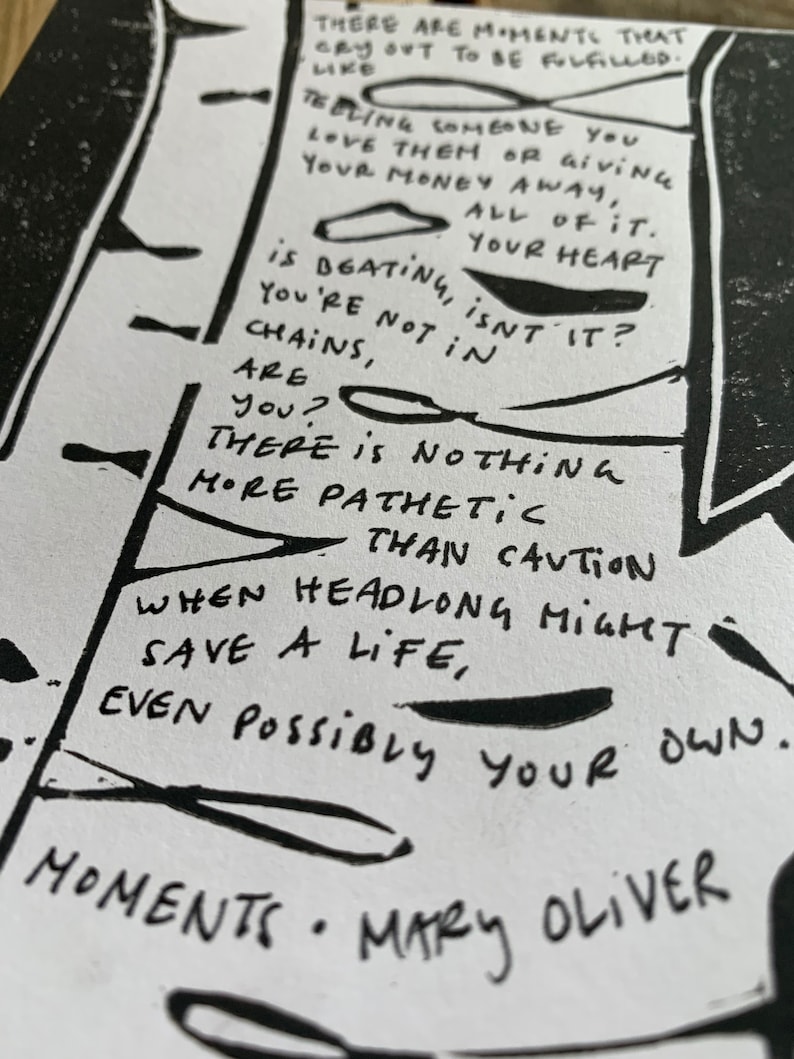 THERE ARE MOMENTS THAT
CRY OUT TO BE FULFILLED.
LIKE
TELLING SOMEONE YOU
LOVE THEM OR GIVING
YOUR MONEY AWAY,
ALL OF IT.
YOUR HEART
IS BEATING, ISNT IT?
YOU'RE NOT IN
CHAINS,
ARE
YOU?
THERE IS NOTHING
MORE PATHETIC
THAN CAUTION
WHEN HEADLONG MIGHT
SAVE A LIFE,
EVEN POSSIBLY YOUR OWN.
MOMENTS • MARY OLIVER